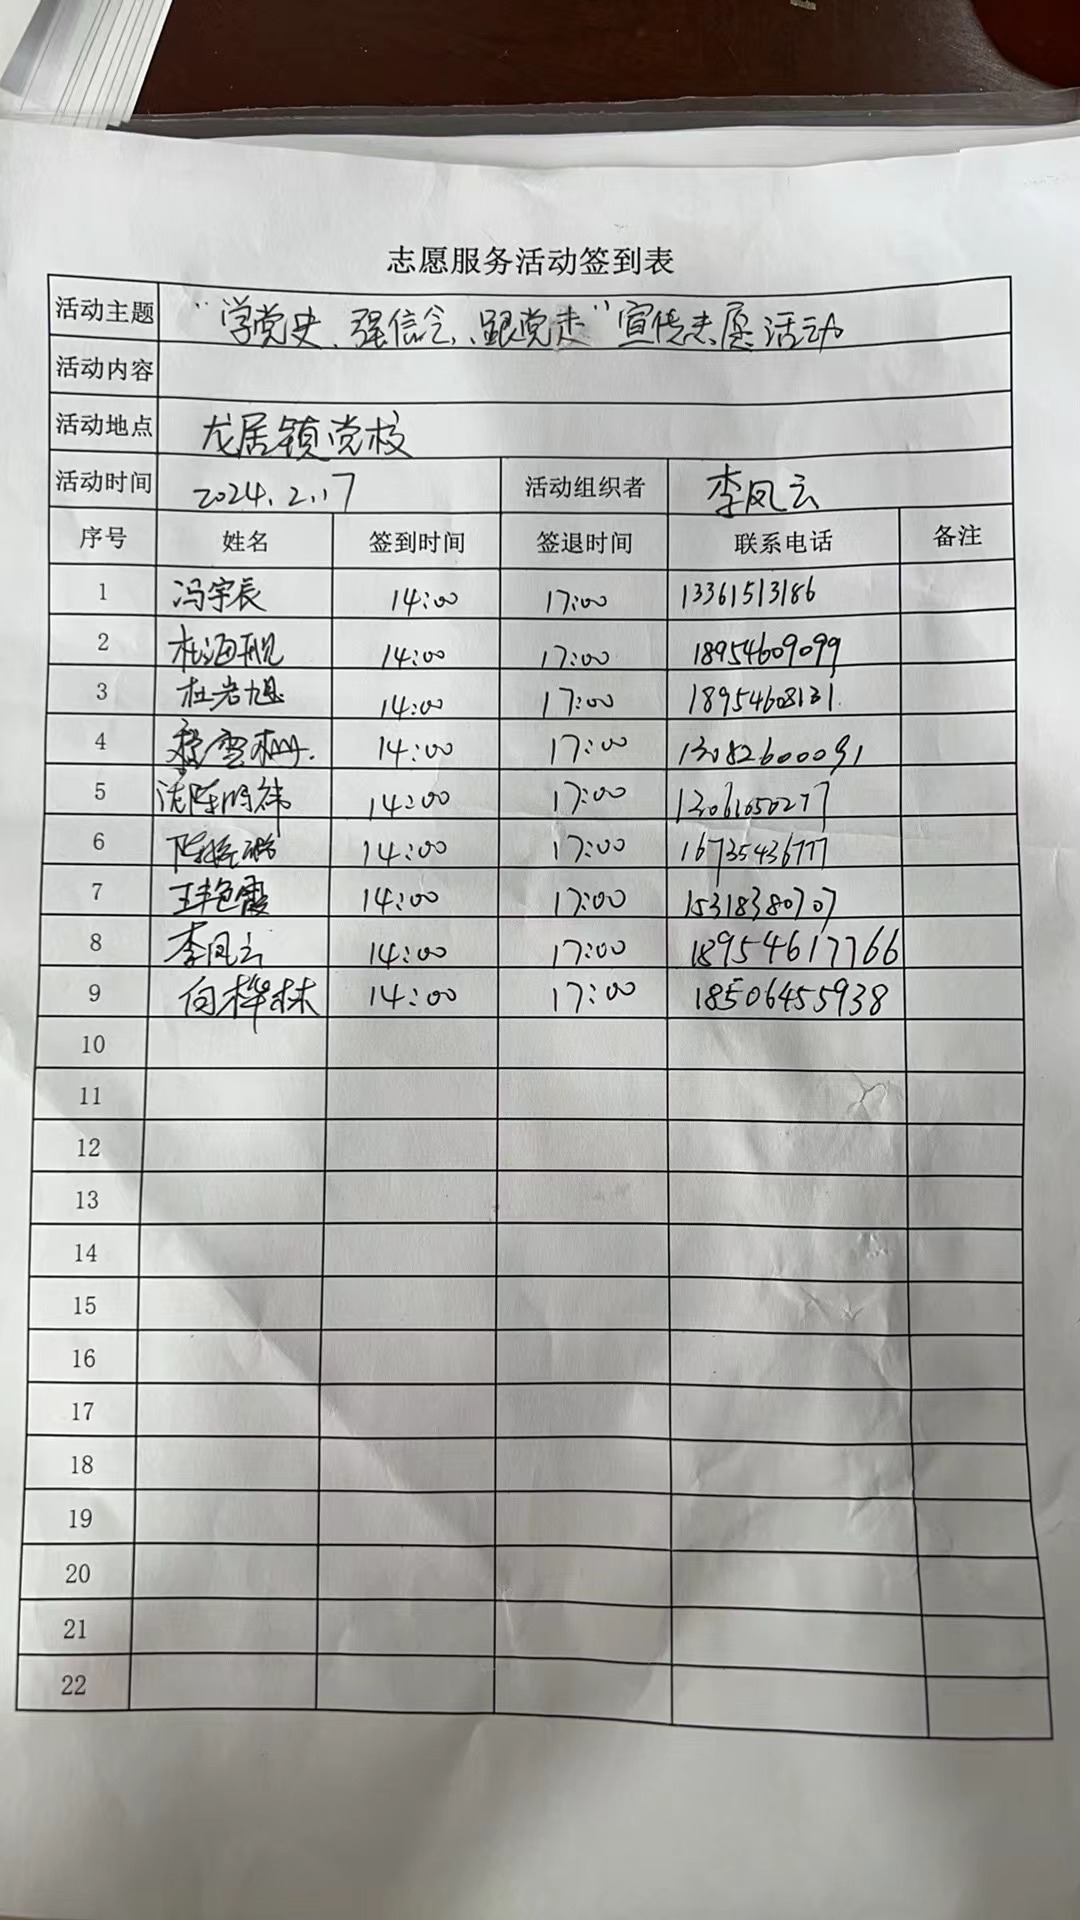 志愿服务活动签到表
活动主题 “学党史、强信念、跟党走”宣传志愿活动
活动内容
活动地点 龙居镇党校
活动时间 2024.2.17 活动组织者 李凤云
序号 姓名 签到时间 签退时间 联系电话 备注
1 冯宇辰 14:00 17:00 13361513186
2 杜海舰 14:00 17:00 18954609099
3 杜岩旭 14:00 17:00 18954608131
4 14:00 17:00 13082600091
5 14:00 17:00 13061050277
6 14:00 17:00 16735436777
7 王艳霞 14:00 17:00 15318380707
8 李凤云 14:00 17:00 18954617766
9 向桦林 14:00 17:00 18506455938
10
11
12
13
14
15
16
17
18
19
20
21
22